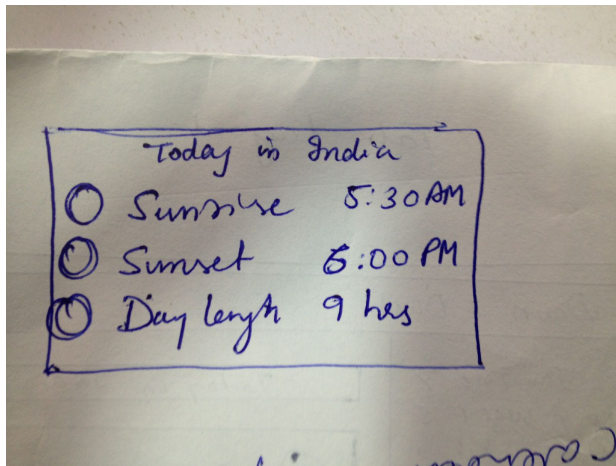 Today in India
Sunrise 5:30 AM
Sunset 6:00 PM
Day length 9 hrs